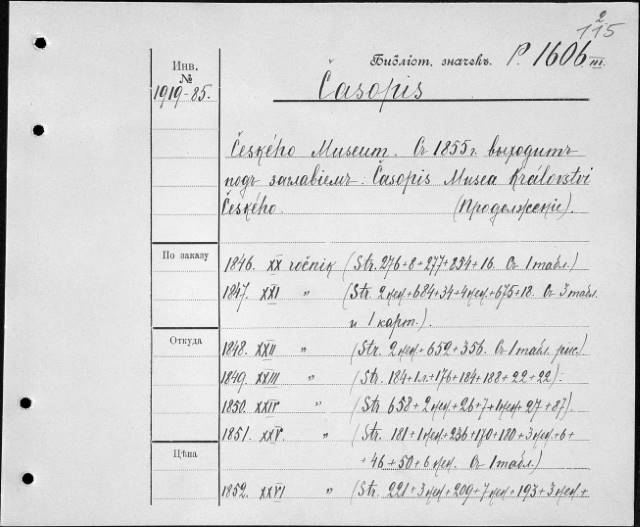 2
115
Библіот. значекъ P. 1606 III.
Инв.
№
1919-85.
Časopis
Českého Museum. Съ 1855 г. выходитъ
подъ заглавіемъ: Časopis Musea Království
Českého. (Продолженіе).
По заказу
1846. XX ročník (Str. 276+8+277+834+16. Съ 1 табл.)
1847. XXI " (Str. 2 нен.+684+34+4 нен.+675+18. Съ 3 табл.
и 1 карт.).
Откуда
1848. XXII " (Str. 2 нен.+652+356. Съ 1 табл. рис.)
1849. XXIII " (Str. 184+1 л.+176+184+188+22+22).
1850. XXIV " (Str. 658+2 нен.+26+7+1 нен.+27+87).
1851. XXV. " (Str. 181+1 нен.+236+170+180+3 нен.+6+
+46+50+6 нен. Съ 1 табл.)
Цѣна
1852. XXVI " (Str. 221+3 нен.+209+7 нен.+193+3 нен.+